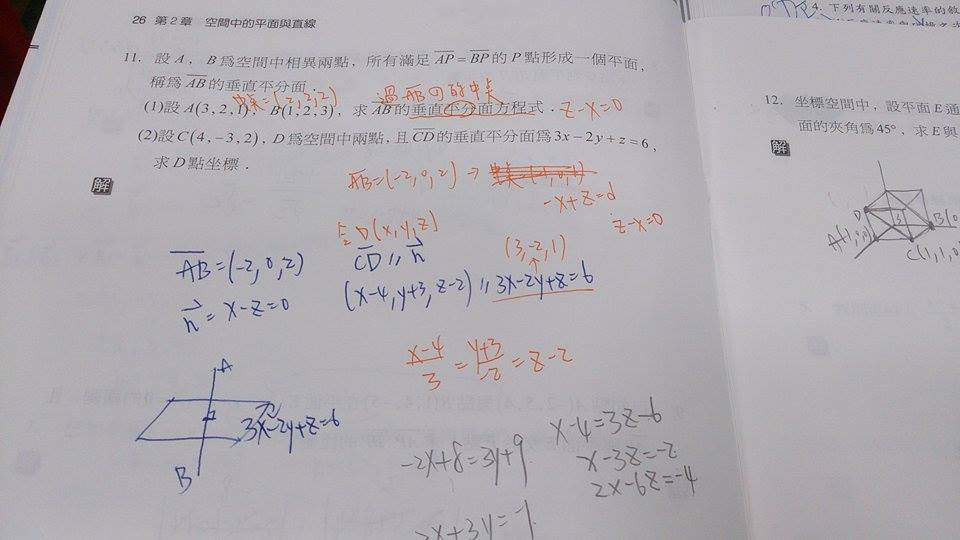 26 第2章 空間中的平面與直線
11. 設 A，B 為空間中相異兩點，所有滿足 AP = BP 的 P 點形成一個平面，
稱為 AB 的垂直平分面．
過AB的中點
中點=(2,2,2)
(1)設 A(3,2,1)，B(1,2,3)，求 AB 的垂直平分面方程式． z-x=0
(2)設 C(4,-3,2)，D 為空間中兩點，且 CD 的垂直平分面為 3x-2y+z=6，
求 D 點坐標．
解
AB=(-2,0,2) →
-x+z=d
z-x=0
D(x,y,z)
CD // n
(3,-2,1)
(x-4,y+3,z-2) // 3x-2y+z=6
AB=(-2,0,2)
n=x-z=0
x-4/3 = y+3/-2 = z-2
A
3x-2y+z=6
B
-2x+8=3y+9
2x+3y=-1
x-4=3z-6
x-3z=-2
2x-6z=-4
4. 下列有關反應速率的敘
12. 坐標空間中，設平面 E 通
面的夾角為 45°，求 E 與
解
D
A(1,
B(0
C(1,1,0